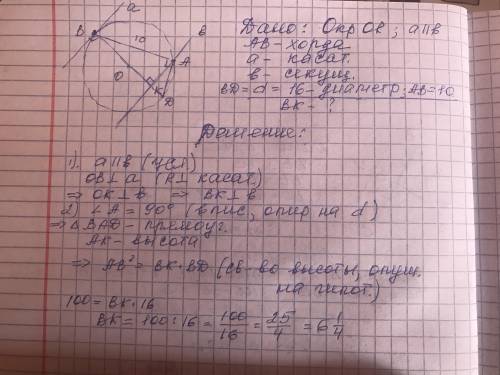 a
B
10
в
O
A
K
D
Дано: Окр OB; a||в
AB - хорда
a - касат.
в - секущ.
BD = d = 16 - диаметр; AB = 10
BK - ?
Решение:
1). a||в (усл)
OB⊥a (R⊥ касат.)
⇒ OK⊥в ⇒ BK⊥в
2) ∠A = 90° (впис, опир на d)
⇒ △BAD - прямоуг.
AK - высота
⇒ AB² = BK·BD (св-во высоты, опущ.
на гипот.)
100 = BK·16
BK = 100:16 = 100/16 = 25/4 = 6 1/4